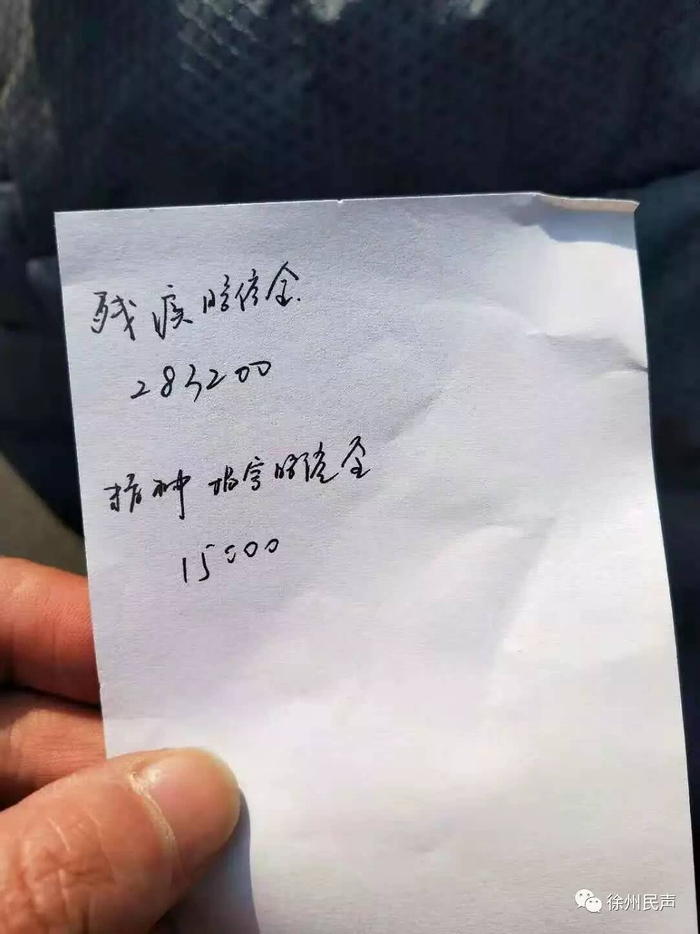 残疾赔偿金.
283200
精神损害赔偿金
15000
徐州民声